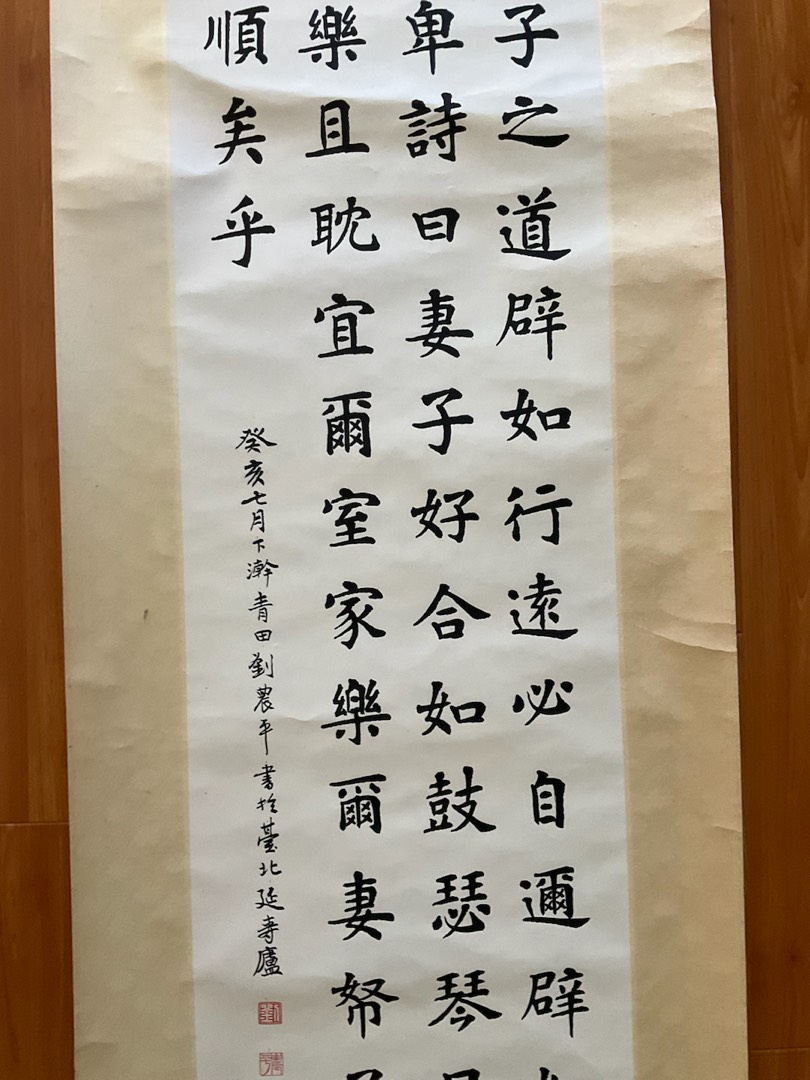 子之道辟如行遠必自邇辟
卑詩曰妻子好合如鼓瑟琴
樂且耽宜爾室家樂爾妻帑
順矣乎
癸亥七月下澣青田劉農平書於臺北延壽廬